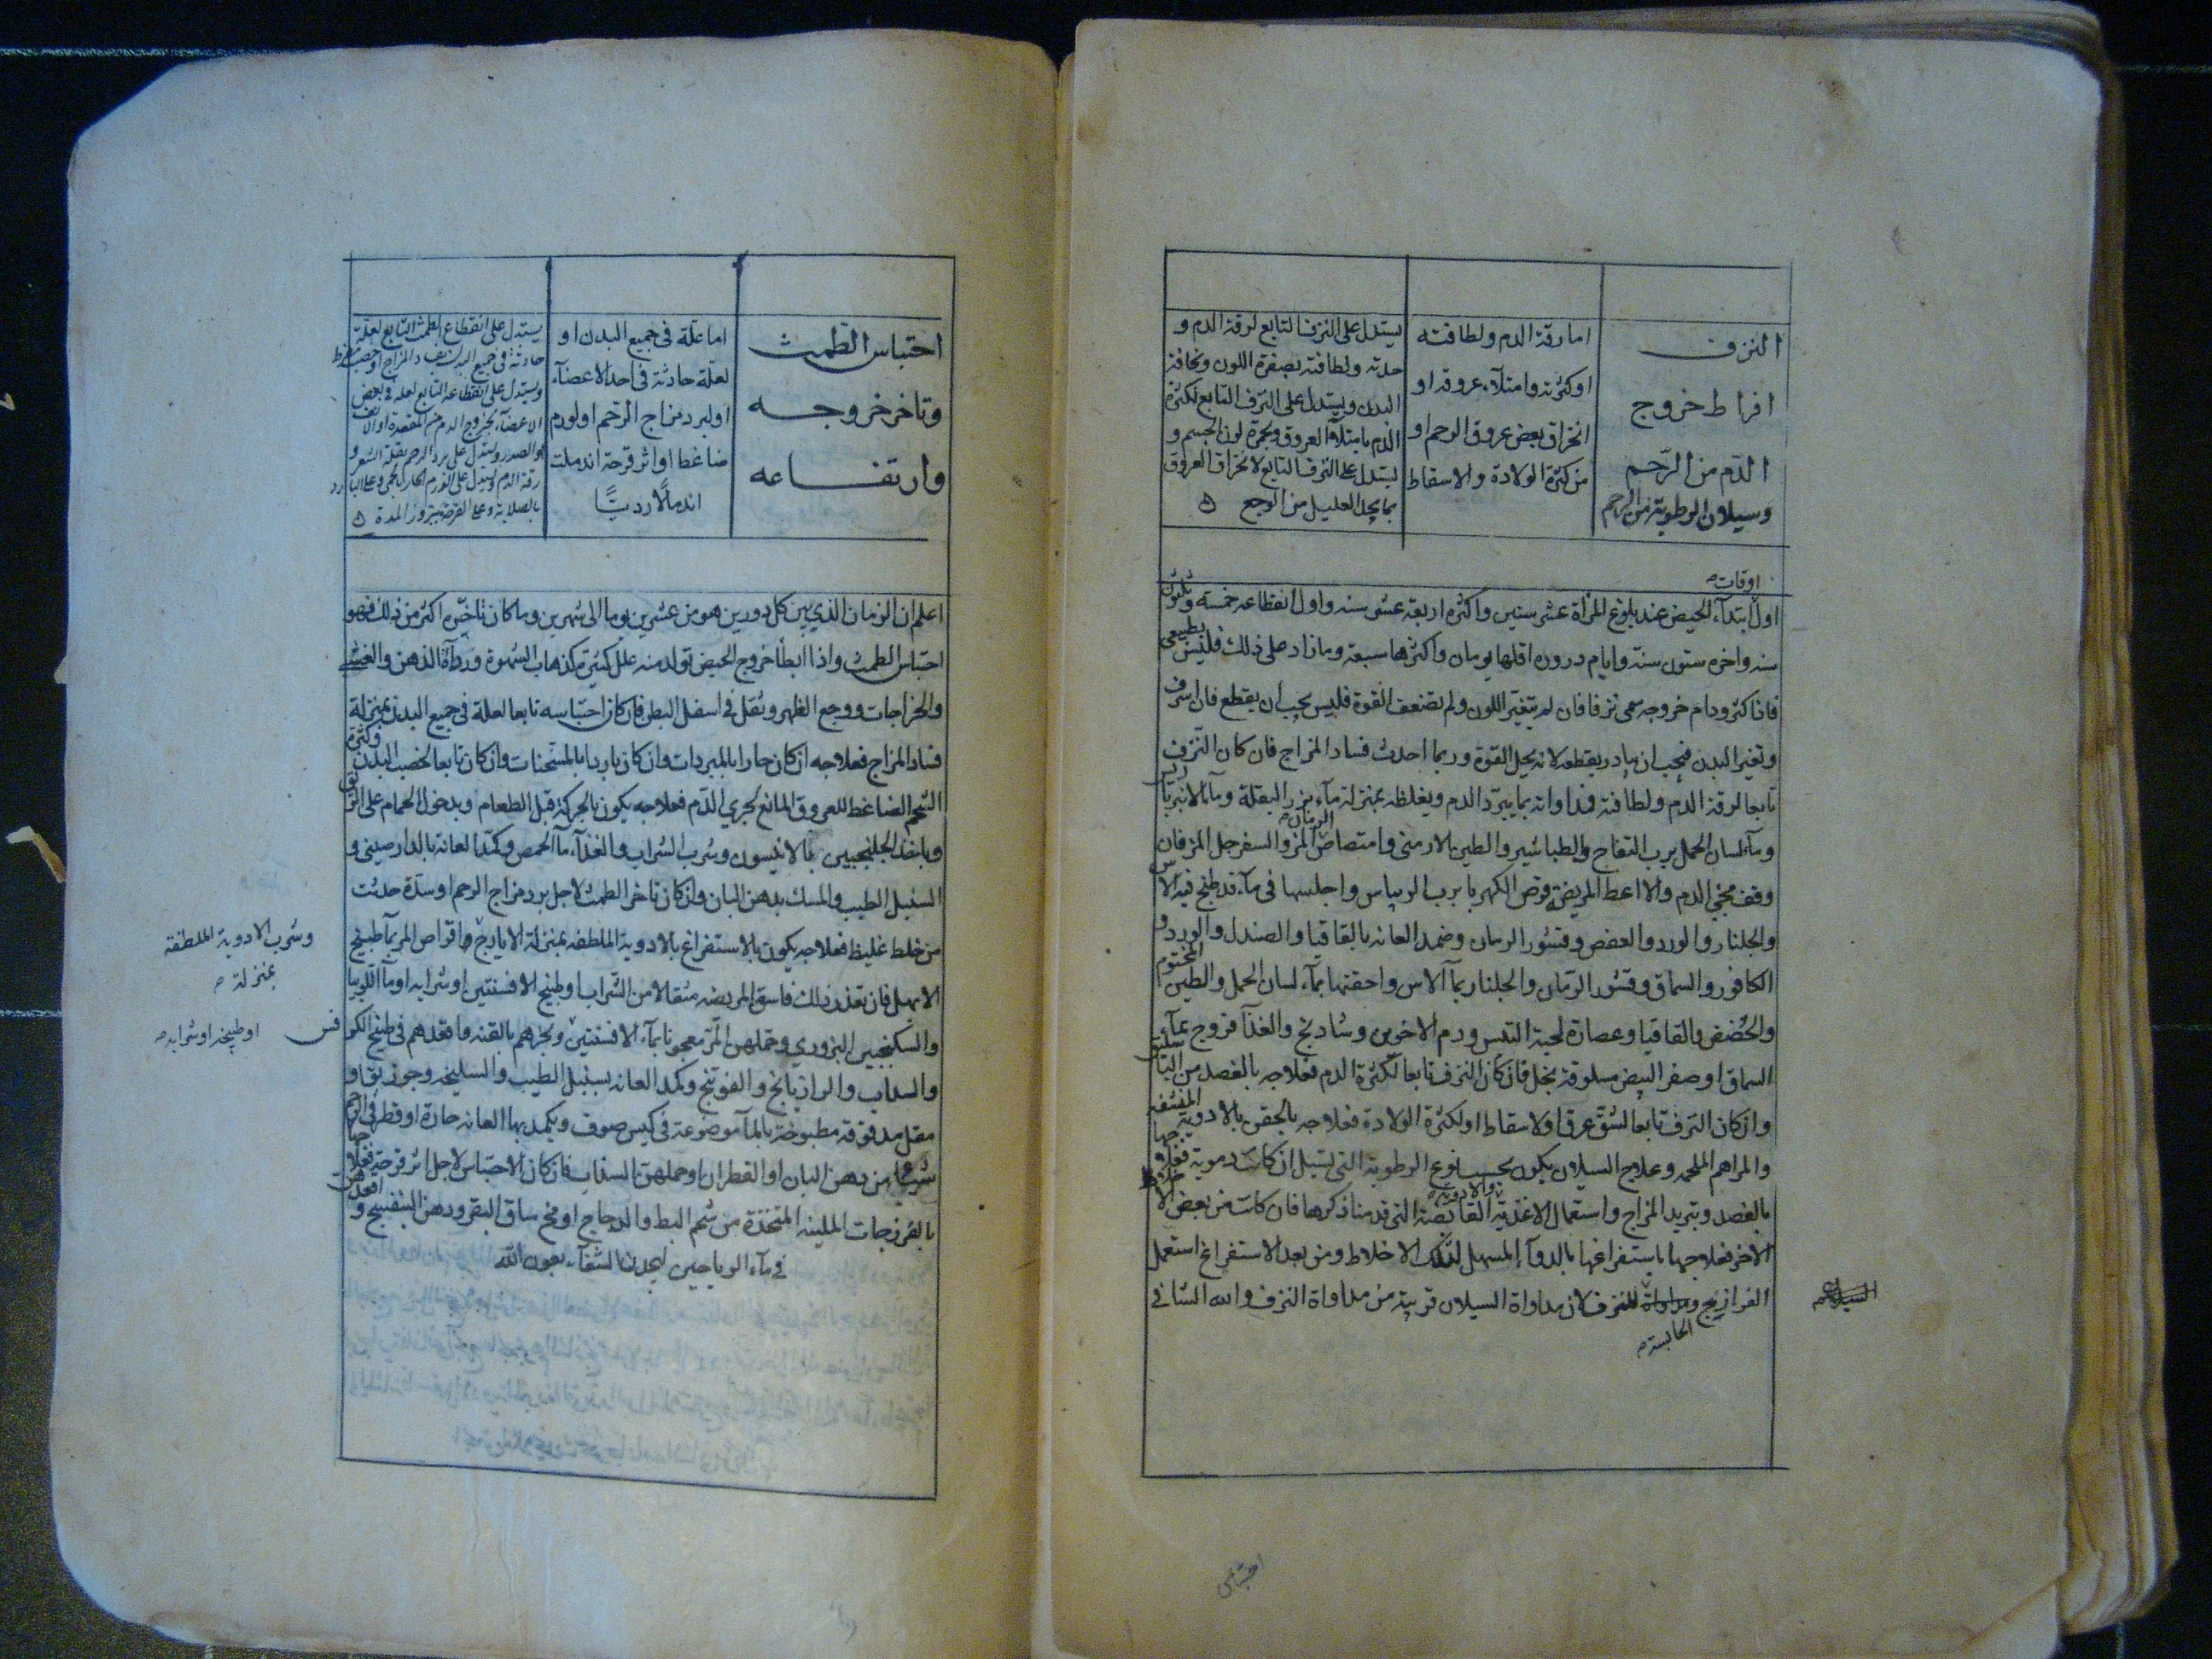 النزف
افراط خروج
الدّم من الرّحم
وسيلان الرطوبة من الرحم
اما رقة الدم ولطافته
او كثرته وامتلآء عروقه او
انخراق بعض عروق الرحم او
من كثرة الولادة والاسقاط
يستدل على النزف التابع لرقة الدم و
حدته ولطافته بصفرة اللون ونحافة
البدن ويستدل على النزف التابع لكثرة
الدم بامتلآء العروق وبحمرة لون الجسم و
يستدل على النزف التابع لانخراق العروق
بما يجد العليل من الوجع ه
اوقات
اول ابتدآء الحيض عند بلوغ المرأة عشر سنين واكثره اربعة عشر سنه واول انقطاعه خمسة وثلثون
سنه واخره ستون سنة وايام دروره اقلها يومان واكثرها سبعة وما زاد على ذلك فليس بطبيعى
فاذا كثر ودام خروجه سمى نزفا فان لم يتغير اللون ولم تضعف القوة فليس يجب ان يقطع فان اسرف
وتغير البدن فيجب ان يبادر بقطعه لانه يحل القوة وربما احدث فساد المزاج فان كان النزف
تابعا لرقة الدم ولطافته فمداواته بما يبرد الدم ويغلظه بمنزلة مآء بزر البقلة ومآء الانبرباريس
ومآء لسان الحمل برب التفاح والطباشير والطين الارمنى وامتصاص الرمان المز والسفرجل المز فان
وقف مجى الدم والا اعط المريضة قرص الكهربا برب الريباس واجلسها فى مآء قد طبخ فيه الاس
والجلنار والورد والعفص وقشور الرمان وضمد العانه بالقاقيا والصندل والورد و
الكافور والسماق وقشور الرمان والجلنار بمآ الاس واحقنها بمآء لسان الحمل والطين المختوم
والحضض والقاقيا وعصارة لحية التيس ودم الاخوين وشادنج والغذآ فروج بمآء
السماق او صفر البيض مسلوقة بخل فان كان النزف تابعا لكثرة الدم فعلاجه بالفصد من الباسليق
وان كان النزف تابعا لشق عرق او لاسقاط او لكثرة الولادة فعلاجه بالحقن بالادوية المنشفه
والمراهم الملحمه وعلاج السيلان يكون بحسب نوع الرطوبة التى تسيل ان كانت دموية فعلاجها
بالفصد وتبريد المزاج واستعمال الاغذية والادوية القابضة التى قد منا ذكرها فان كانت من بعض الاخلاط
الاخر فعلاجها باستفراغها بالدوآ المسهل لتلك الاخلاط ومن بعد الاستفراغ استعمل
الفرازيج الحابسة للنزف لان مداواة السيلان قريبة من مداواة النزف والله الشافى
احتباس
احتباس الطمث
وتاخر خروجه
وارتفاعه
اما علّة فى جميع البدن او
لعلّة حادثة فى احد الاعضآء
او لبرد مزاج الرّحم او لورم
ضاغط او اثر قرحة اندملت
اندمالًا رديًّا
يستدل على انقطاع الطمث التابع لعلة
حادثة فى جميع البدن بفساد المزاج او خصب مفرط
ويستدل على انقطاعه التابع لعلة فى بعض
الاعضآء بخروج الدم من المقعدة او الانف
او الصدر ويستدل على برد الرحم بقلة الشعر و
رقة الدم ويستدل على الورم الحار بالحمى وعلى البارد
بالصلابة وعلى القرحة ببروز المدة ه
اعلم ان الزمان الذى بين كل دورين هو من عشرين يوما الى شهرين وما كان تاخّره اكثر من ذلك فهو
احتباس الطمث واذا ابطأ خروج الحيض تولد منه علل كثيرة كذهاب الشهوة وردآءة الذهن والغشى
والخراجات ووجع الظهر وثقل فى اسفل البطن فان كان احتباسه تابعا لعلة فى جميع البدن بمنزلة
فساد المزاج فعلاجه ان كان حارا بالمبردات وان كان باردا بالمسخنات وان كان تابعا لخصب البدن وكثرة
الشحم الضاغط للعروق المانع لجرى الدّم فعلاجه يكون بالحركة قبل الطعام وبدخول الحمام على الريق
وباخذ الجلنجبين بالانيسون وشرب الشراب والغذآء مآ الحمص وكمّد العانه بالدارصينى و
السنبل الطيب والمسك بدهن البان وان كان تاخر الطمث لاجل برد مزاج الرحم او سدّة حدثت
من خلط غليظ فعلاجه يكون بالاستفراغ بالادوية الملطفه بمنزلة الايارج واقراص المر بمآ طبيخ
الابهل فان تعذر ذلك فاسق المريضه مثقالا من الشراب او طبيخ الافسنتين او شرابه او مآ اللوبيا
والسكنجبين البزورى وحملهن المر معجونا بمآء الافسنتين وبخرهم بالقنه واقعدهم فى طبيخ الكرفس
والسداب والرازيانج والفوتنج وكمد العانه بسنبل الطيب والسليخه وجوز بوا و
مقل مدقوقة مطبوخة بالمآ موضوعة فى كيس صوف ويكمد بها العانه حارة او قطر فى الرحم
شيئا من دهن البان او القطران او حملهن السذاب فان كان الاحتباس لاجل اثر قرحة فعلاجها
بالفرزجات الملينه المتخذة من شحم البط والدجاج او مخ ساق البقر ودهن البنفسج و اقعدهن
فى مآء الرياحين ليحدث الشفآء بعون الله
وشرب الادوية الملطفة
بمنزلة
او طبيخه او شرابه